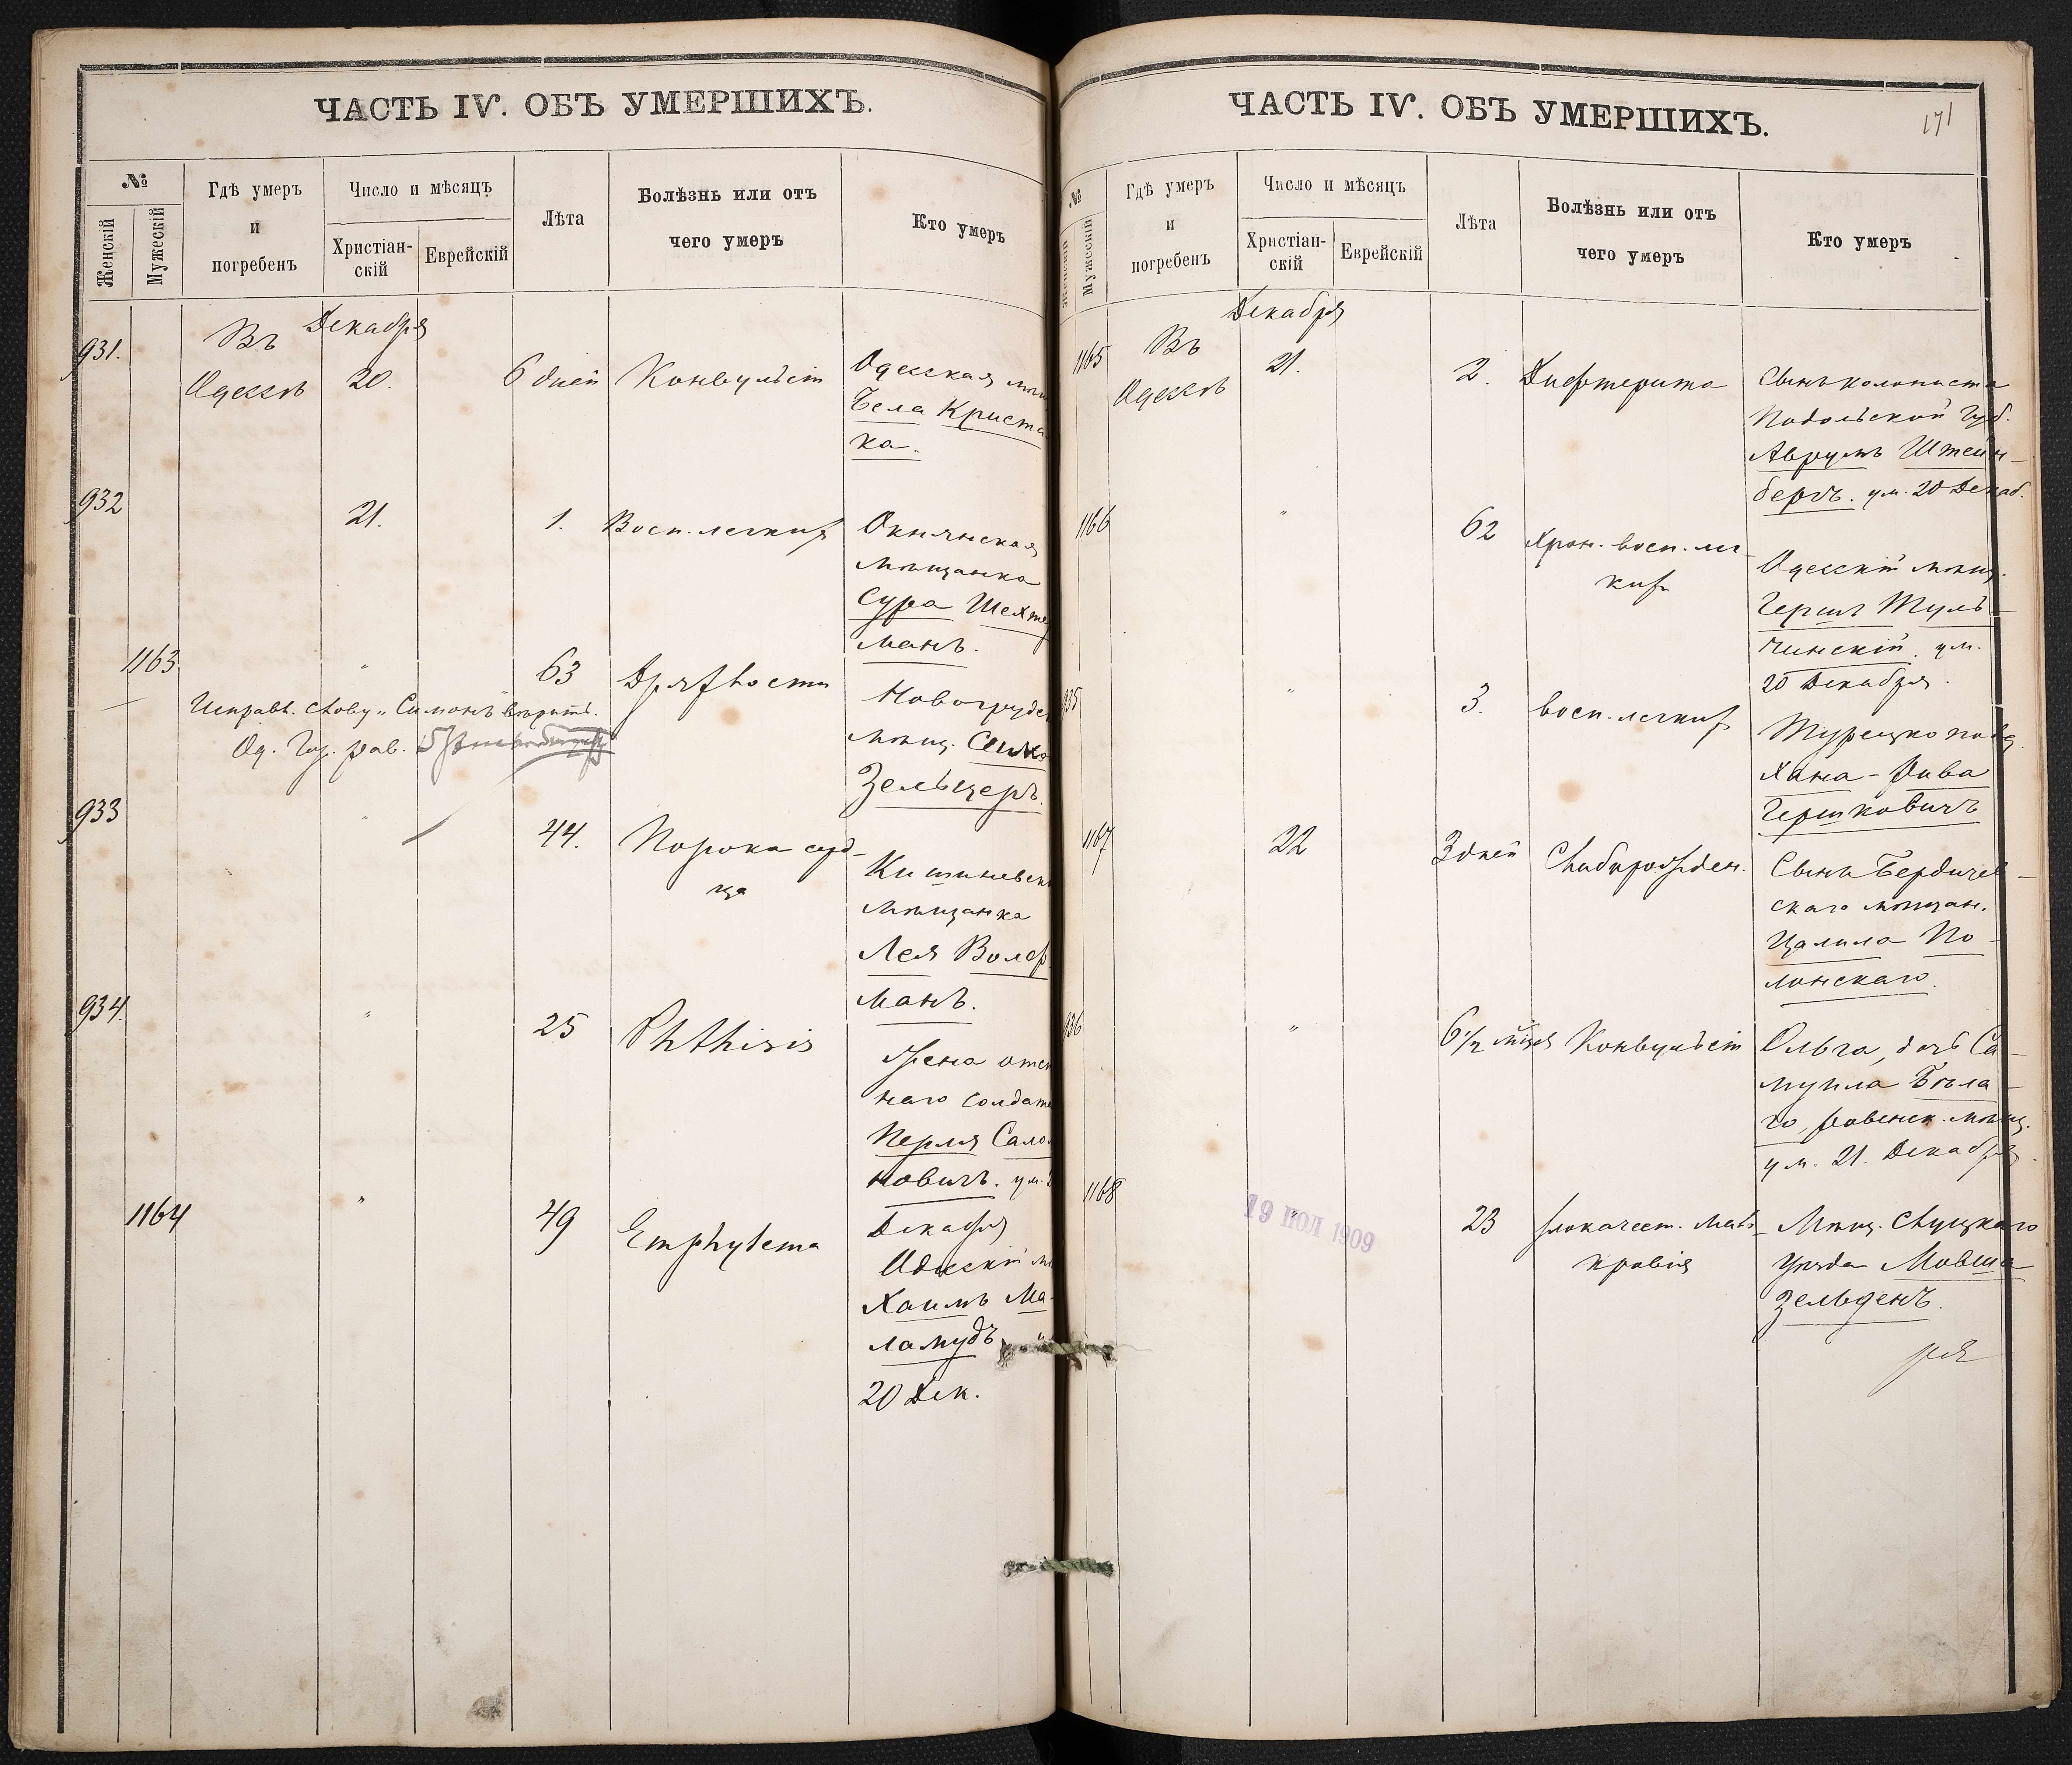 ЧАСТЬ IV. ОБЪ УМЕРШИХЪ.
№
Женскій
Мужескій
Гдѣ умеръ
и
погребенъ
Число и мѣсяцъ
Христіан-
скій
Еврейскій
Лѣта
Болѣзнь или отъ
чего умеръ
Кто умеръ
931.
Въ
Одессѣ
Декабря
20.
6 дней
Конвульсіи
Одесская
Бела Криста
ка.
932
21.
1.
Восп. легких
Окнянская
мѣщанка
Сура Шехте
манъ.
1163
"
63
Дряхлости
Новогрудс
мѣщ. Симо
Зельцеръ.
Исправл. слову "Симонъ" вѣрить.
Од. Гор. рав.
933
"
44.
Порока серд-
ца
Кишиневск
мѣщанка
Лея Волф
манъ.
934.
"
25
Phthisis
Жена отс
наго солдат
Перля Сало
новичъ. ум.
Декабря
1164
"
49
Emphysema
Одесскій
Хаимъ Ма-
ламудъ "
20 Дек.
ЧАСТЬ IV. ОБЪ УМЕРШИХЪ.
171
№
Женскій
Мужескій
Гдѣ умеръ
и
погребенъ
Число и мѣсяцъ
Христіан-
скій
Еврейскій
Лѣта
Болѣзнь или отъ
чего умеръ
Кто умеръ
1165
Въ
Одессѣ
Декабря
21.
2.
Дифтерита
Сынъ колониста
Подольской Губ.
Аврумъ Штейн-
бергъ. ум. 20 Декаб.
1166
"
62
Хрон. восп. лег-
ких
Одесскій мѣщ.
Гершъ Туль-
чинскій. ум.
20 Декабря.
935
"
3.
Восп. легких
Турецко подд.
Хана-Рива
Гершковичъ
1167
22
3 дней
Слаборожден.
Сынъ Бердичев-
скаго мѣщан.
Цалила По-
лонскаго.
936
"
6 1/2 мѣсяц
Конвульсіи
Ольга, дочь Са-
муила Бѣла-
го, Ровенск. мѣщ.
ум. 21. Декабря.
1168
"
19 ИЮЛ 1909
23
Злокачест. мало-
кровія
Мѣщ. Слуцкаго
Уѣзда Мовша
Зельденъ.